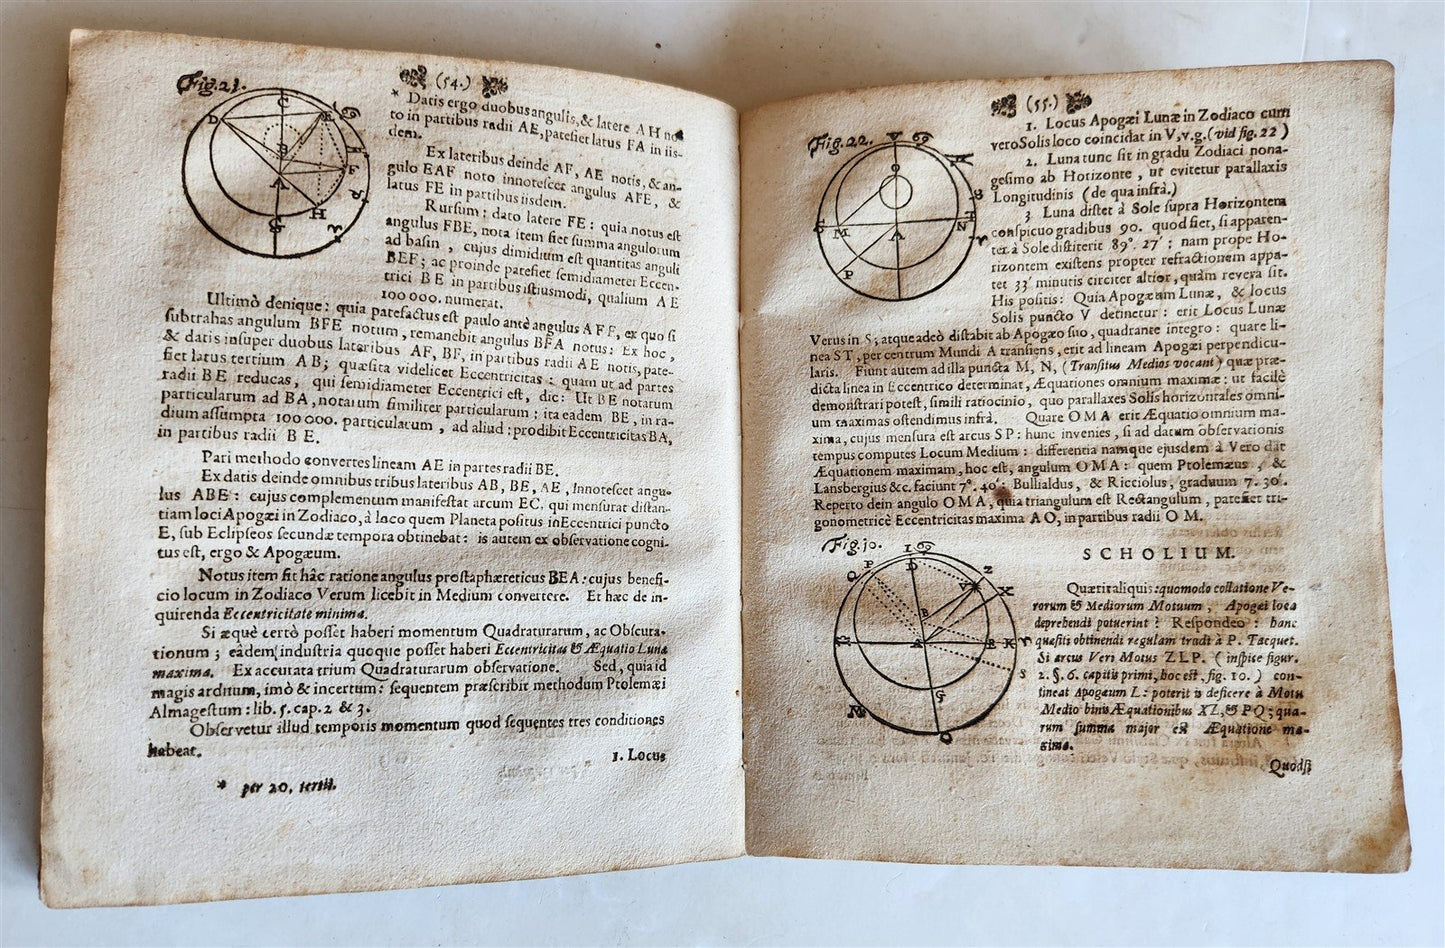 Fig. 21.
(54.)
* Datis ergo duobus angulis, & latere AH no-
to in partibus radii AE, patefiet latus FA in iis-
dem.
Ex lateribus deinde AF, AE notis, & an-
gulo EAF noto innotescet angulus AFE, &
latus FE in partibus iisdem.
Rursum: dato latere FE: quia notus est
angulus FBE, nota item fiet summa angulorum
ad basin, cujus dimidium est quantitas anguli
BEF; ac proinde patefiet semidiameter Eccen-
trici BE in partibus istiusmodi, qualium AE
100000. numerat.
Ultimò denique: quia patefactus est paulo antè angulus AFE, ex quo si
subtrahas angulum BFE notum, remanebit angulus BFA notus: Ex hoc,
& datis insuper duobus lateribus AF, BF, in partibus radii AE notis, pate-
fiet latus tertium AB; quæsita videlicet Eccentricitas: quam ut ad partes
radii BE reducas, qui semidiameter Eccentrici est, dic: Ut BE notarum
particularum ad BA, notarum similiter particularum; ita eadem BE, in ra-
dium assumpta 100000. particularum, ad aliud: prodibit Eccentricitas BA,
in partibus radii BE.
Pari methodo convertes lineam AE in partes radii BE.
Ex datis deinde omnibus tribus lateribus AB, BE, AE, Innotescet angu-
lus ABE: cujus complementum manifestat arcum EC, qui mensurat distan-
tiam loci Apogæi in Zodiaco, à loco quem Planeta positus in Eccentrici puncto
E, sub Eclipseos secundæ tempora obtinebat: is autem ex observatione cogni-
tus est, ergo & Apogæum.
Notus item fit hâc ratione angulus prostaphæreticus BEA: cujus benefi-
cio locum in Zodiaco Verum licebit in Medium convertere. Et hæc de in-
quirenda Eccentricitate minima.
Si æquè certò posset haberi momentum Quadraturarum, ac Obscura-
tionum; eâdem industria quoque posset haberi Eccentricitas & Æquatio Lunæ
maxima. Ex accurata trium Quadraturarum observatione. Sed, quia id
magis arduum, imò & incertum: sequentem præscribit methodum Ptolemæi
Almagestum: lib. 5. cap. 2 & 3.
Observetur illud temporis momentum quod sequentes tres conditiones
habeat.
1. Locus
* per 20. tertii.
Fig. 22.
(55.)
1. Locus Apogæi Lunæ in Zodiaco cum
vero Solis loco coincidat in V, v.g. (vid fig. 22)
2. Luna tunc sit in gradu Zodiaci nona-
gesimo ab Horizonte, ut evitetur parallaxis
Longitudinis (de qua infrà.)
3 Luna distet à Sole supra Horizontem
conspicuo gradibus 90. quod fiet, si apparen-
ter à Sole distiterit 89°. 27′: nam prope Ho-
rizontem existens propter refractionem appa-
ret 33′ minutis circiter altior, quàm revera sit.
His positis: Quia Apogæum Lunæ, & locus
Solis puncto V detinetur: erit Locus Lunæ
Verus in S; atque adeò distabit ab Apogæo suo, quadrante integro: quare li-
nea ST, per centrum Mundi A transiens, erit ad lineam Apogæi perpendicu-
laris. Fiunt autem ad illa puncta M, N, (Transitus Medios vocant) quæ præ-
dicta linea in Eccentrico determinat, Æquationes omnium maximæ: ut facilè
demonstrari potest, simili ratiocinio, quo parallaxes Solis horizontales omni-
um maximas ostendimus infrà. Quare OMA erit Æquatio omnium ma-
xima, cujus mensura est arcus SP: hunc invenies, si ad datum observationis
tempus computes Locum Medium: differentia namque ejusdem à Vero dat
Æquationem maximam, hoc est, angulum OMA: quem Ptolemæus, &
Lansbergius &c. faciunt 7°. 40′: Bullialdus, & Ricciolus, graduum 7. 30′.
Reperto dein angulo OMA, quia triangulum est Rectangulum, patefiet tri-
gonometricè Eccentricitas maxima AO, in partibus radii OM.
Fig. 10.
SCHOLIUM.
Quæritaliquis: quomodo collatione Ve-
rorum & Mediorum Motuum, Apogæi loca
deprehendi potuerint? Respondeo: hanc
quæsiis obtinendi regulam tradi à P. Tacquet.
Si arcus Veri Motus ZLP. (inspice figur.
2. §. 6. capitis primi, hoc est, fig. 10.) con-
tineat Apogæum L: poterit is deficere à Motu
Medio binis Æquationibus XZ, & PQ; qua-
rum summa major est Æquatione ma-
xima.
Quodsi